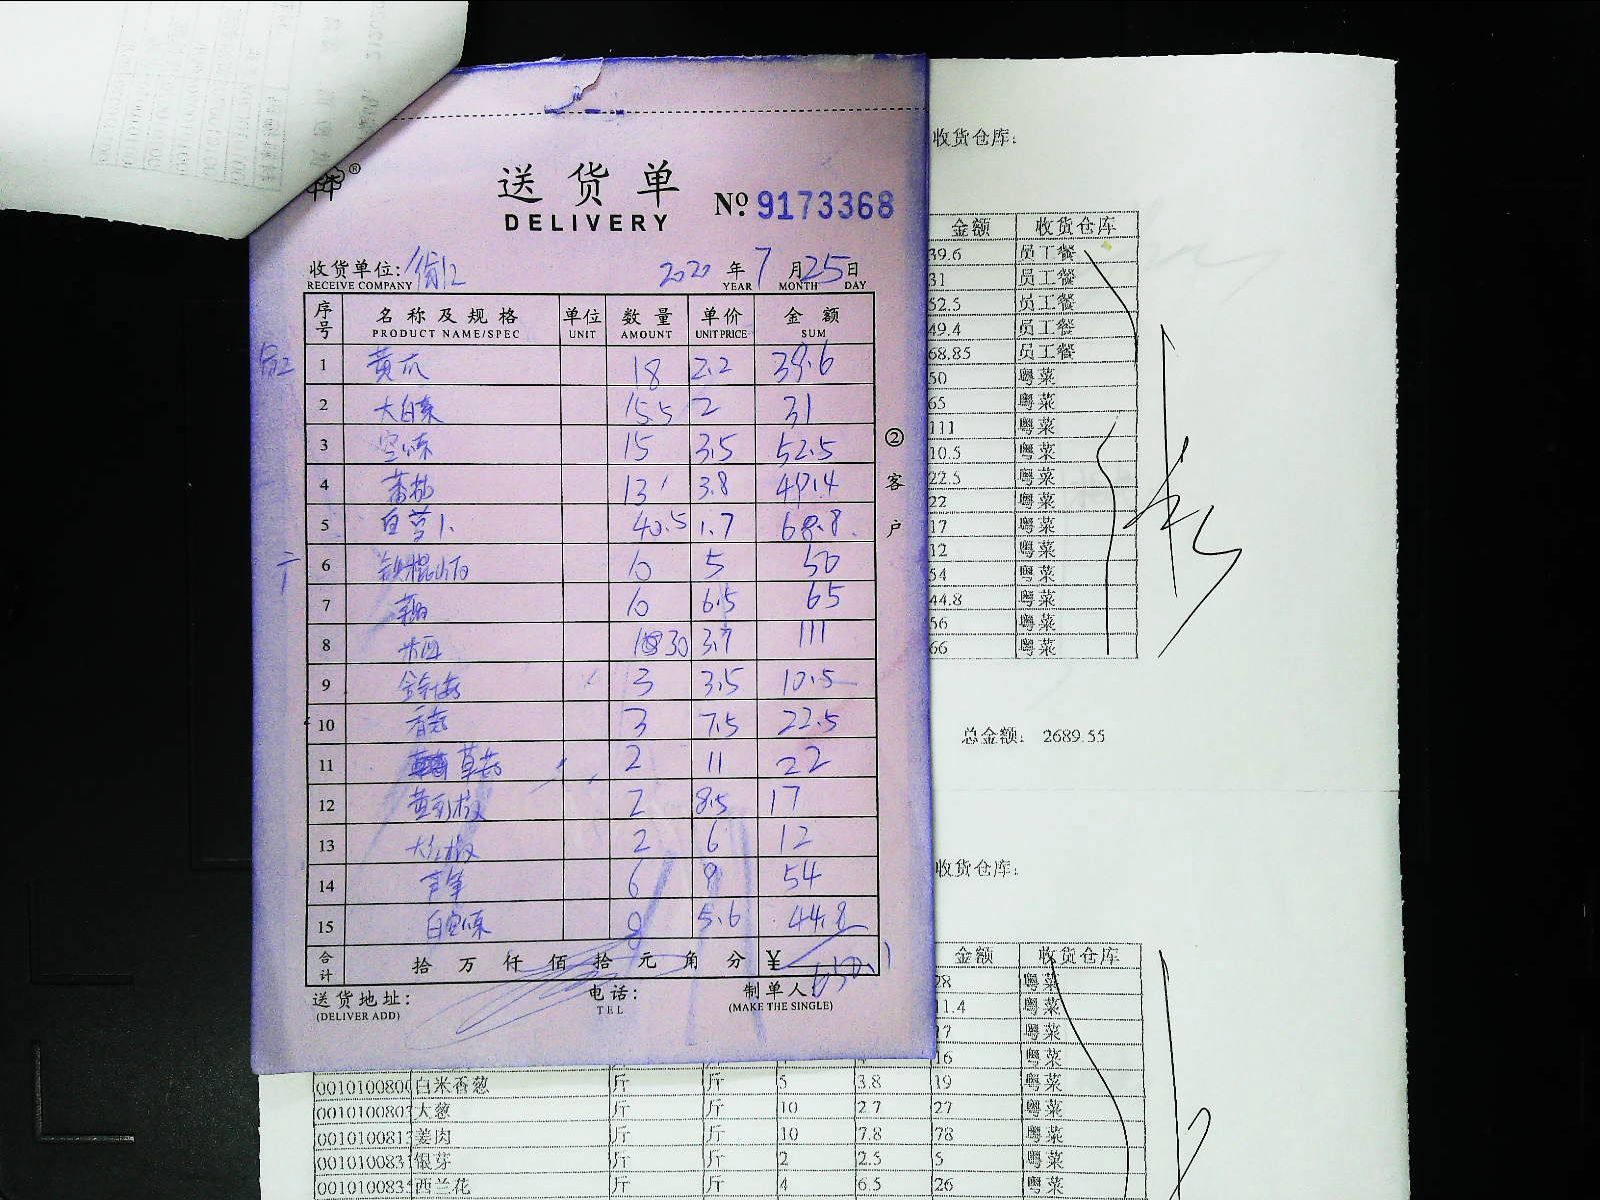 送货单
DELIVERY
№ 9173368
收货单位:
RECEIVE COMPANY
2020 年 7 月 25 日
YEAR MONTH DAY
序号 名称及规格 单位 数量 单价 金额
PRODUCT NAME/SPEC UNIT AMOUNT UNIT PRICE SUM
1 黄瓜 18 2.2 39.6
2 大白菜 15.5 2 31
3 15 3.5 52.5
4 13 3.8 49.4
5 白萝卜 40.5 1.7 68.8
6 铁棍山药 10 5 50
7 10 6.5 65
8 30 3.7 111
9 3 3.5 10.5
10 香菇 3 7.5 22.5
11 草菇 2 11 22
12 2 8.5 17
13 2 6 12
14 芦笋 6 9 54
15 8 5.6 44.8
合计 拾 万 仟 佰 拾 元 角 分 ¥ 650.1
送货地址:
(DELIVER ADD)
电话:
TEL
制单人:
(MAKE THE SINGLE)
② 客户
收货仓库:
金额 收货仓库
39.6 员工餐
31 员工餐
52.5 员工餐
49.4 员工餐
68.85 员工餐
50 粤菜
65 粤菜
111 粤菜
10.5 粤菜
22.5 粤菜
22 粤菜
17 粤菜
12 粤菜
54 粤菜
44.8 粤菜
56 粤菜
66 粤菜
总金额: 2689.55
收货仓库:
金额 收货仓库
28 粤菜
11.4 粤菜
17 粤菜
16 粤菜
0010100800 白米香葱 斤 斤 5 3.8 19 粤菜
001010080 大葱 斤 斤 10 2.7 27 粤菜
001010081 姜肉 斤 斤 10 7.8 78 粤菜
001010083 银芽 斤 斤 2 2.5 5 粤菜
001010083 西兰花 斤 斤 4 6.5 26 粤菜